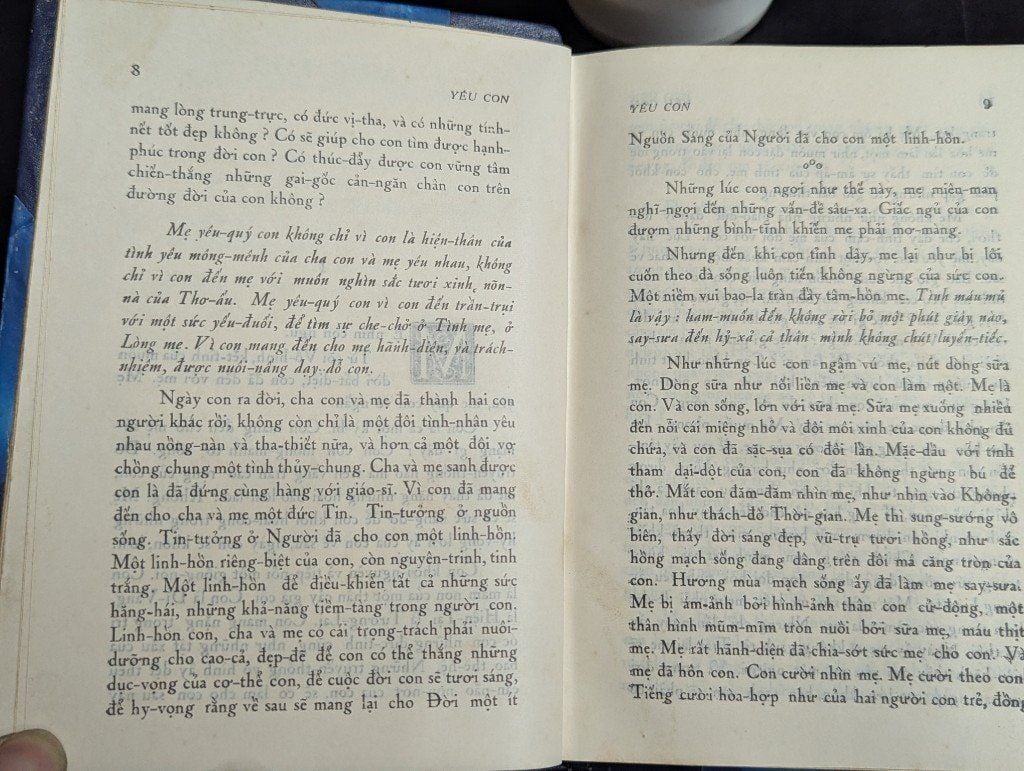 8
YÊU CON
mang lòng trung-trực, có đức vị-tha, và có những tính-
nết tốt đẹp không ? Có sẽ giúp cho con tìm được hạnh-
phúc trong đời con ? Có thúc-đẩy được con vững tâm
chiến-thắng những gai-gốc cản-ngăn chân con trên
đường đời của con không ?
Mẹ yêu-quý con không chỉ vì con là hiện-thân của
tình yêu mông-mênh của cha con và mẹ yêu nhau, không
chỉ vì con đến mẹ với muôn nghìn sắc tươi xinh, nõn-
nà của Thơ-ấu. Mẹ yêu-quý con vì con đến trần-trụi
với một sức yếu-đuối, để tìm sự che-chở ở Tình mẹ, ở
Lòng mẹ. Vì con mang đến cho mẹ hãnh-diện, và trách-
nhiệm, được nuôi-nấng dạy-dỗ con.
Ngày con ra đời, cha con và mẹ đã thành hai con
người khác rồi, không còn chỉ là một đôi tình-nhân yêu
nhau nồng-nàn và tha-thiết nữa, và hơn cả một đôi vợ
chồng chung một tình thủy-chung. Cha và mẹ sanh được
con là đã đứng cùng hàng với giáo-sĩ. Vì con đã mang
đến cho cha và mẹ một đức Tin. Tin-tưởng ở nguồn
sống. Tin-tưởng ở Người đã cho con một linh-hồn.
Một linh-hồn riêng-biệt của con, còn nguyên-trinh, tinh
trắng. Một linh-hồn để điều-khiển tất cả những sức
hăng-hái, những khả-năng tiềm-tàng trong người con.
Linh-hồn con, cha và mẹ có cái trọng-trách phải nuôi-
dưỡng cho cao-cả, đẹp-đẽ để con có thể thắng những
dục-vọng của cơ-thể con, để cuộc đời con sẽ tươi sáng,
để hy-vọng rằng về sau sẽ mang lại cho Đời một ít
YÊU CON
9
Nguồn Sáng của Người đã cho con một linh-hồn.
Những lúc con ngơi như thế này, mẹ miên-man
nghĩ-ngợi đến những vấn-đề sâu-xa. Giấc ngủ của con
đượm những bình-tĩnh khiến mẹ phải mơ-màng.
Nhưng đến khi con tỉnh dậy, mẹ lại như bị lôi
cuốn theo đà sống luôn tiến không ngừng của sức con.
Một niềm vui bao-la tràn đầy tâm-hồn mẹ. Tình máu mủ
là vậy : ham-muốn đến không rời bỏ một phút giây nào,
say-sưa đến hỷ-xả cả thân mình không chút luyến-tiếc.
Như những lúc con ngậm vú mẹ, nút dòng sữa
mẹ. Dòng sữa như nối liền mẹ và con làm một. Mẹ là
con. Và con sống, lớn với sữa mẹ. Sữa mẹ xuống nhiều
đến nỗi cái miệng nhỏ và đôi môi xinh của con không đủ
chứa, và con đã sặc-sụa có đôi lần. Mặc-dầu với tính
tham dại-dột của con, con đã không ngừng bú để
thở. Mắt con đăm-đăm nhìn mẹ, như nhìn vào Không-
gian, như thách-đố Thời-gian. Mẹ thì sung-sướng vô
biên, thấy đời sáng đẹp, vũ-trụ tươi hồng, như sắc
hồng mạch sống đang dâng trên đôi má căng tròn của
con. Hương mùa mạch sống ấy đã làm mẹ say-sưa.
Mẹ bị ám-ảnh bởi hình-ảnh thân con cử-động, một
thân hình mũm-mĩm tròn nuôi bởi sữa mẹ, máu thịt
mẹ. Mẹ rất hãnh-diện đã chia-sớt sức mẹ cho con. Và
mẹ đã hôn con. Con cười nhìn mẹ. Mẹ cười theo con
Tiếng cười hòa-hợp như của hai người con trẻ, đồng